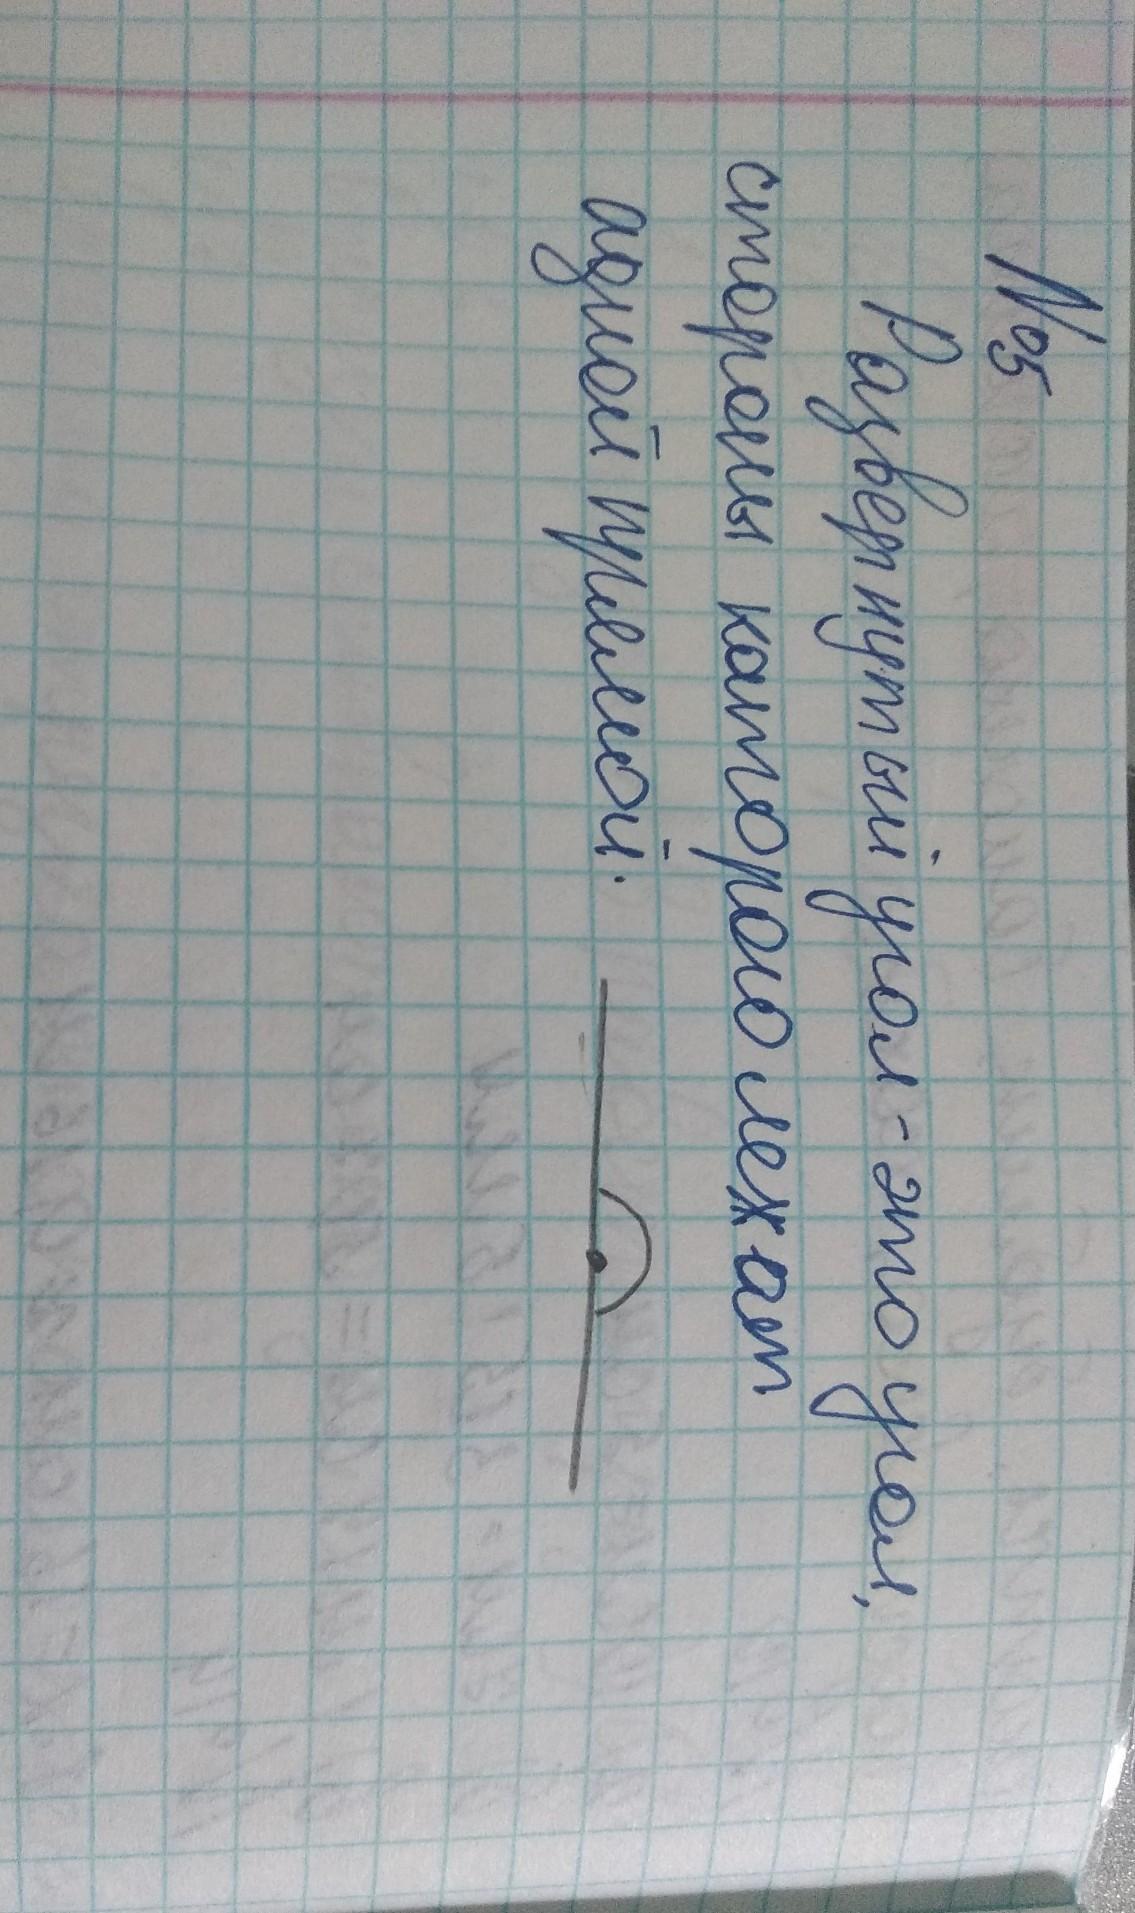 №5
Развернутый угол - это угол,
стороны которого лежат
одной прямой.